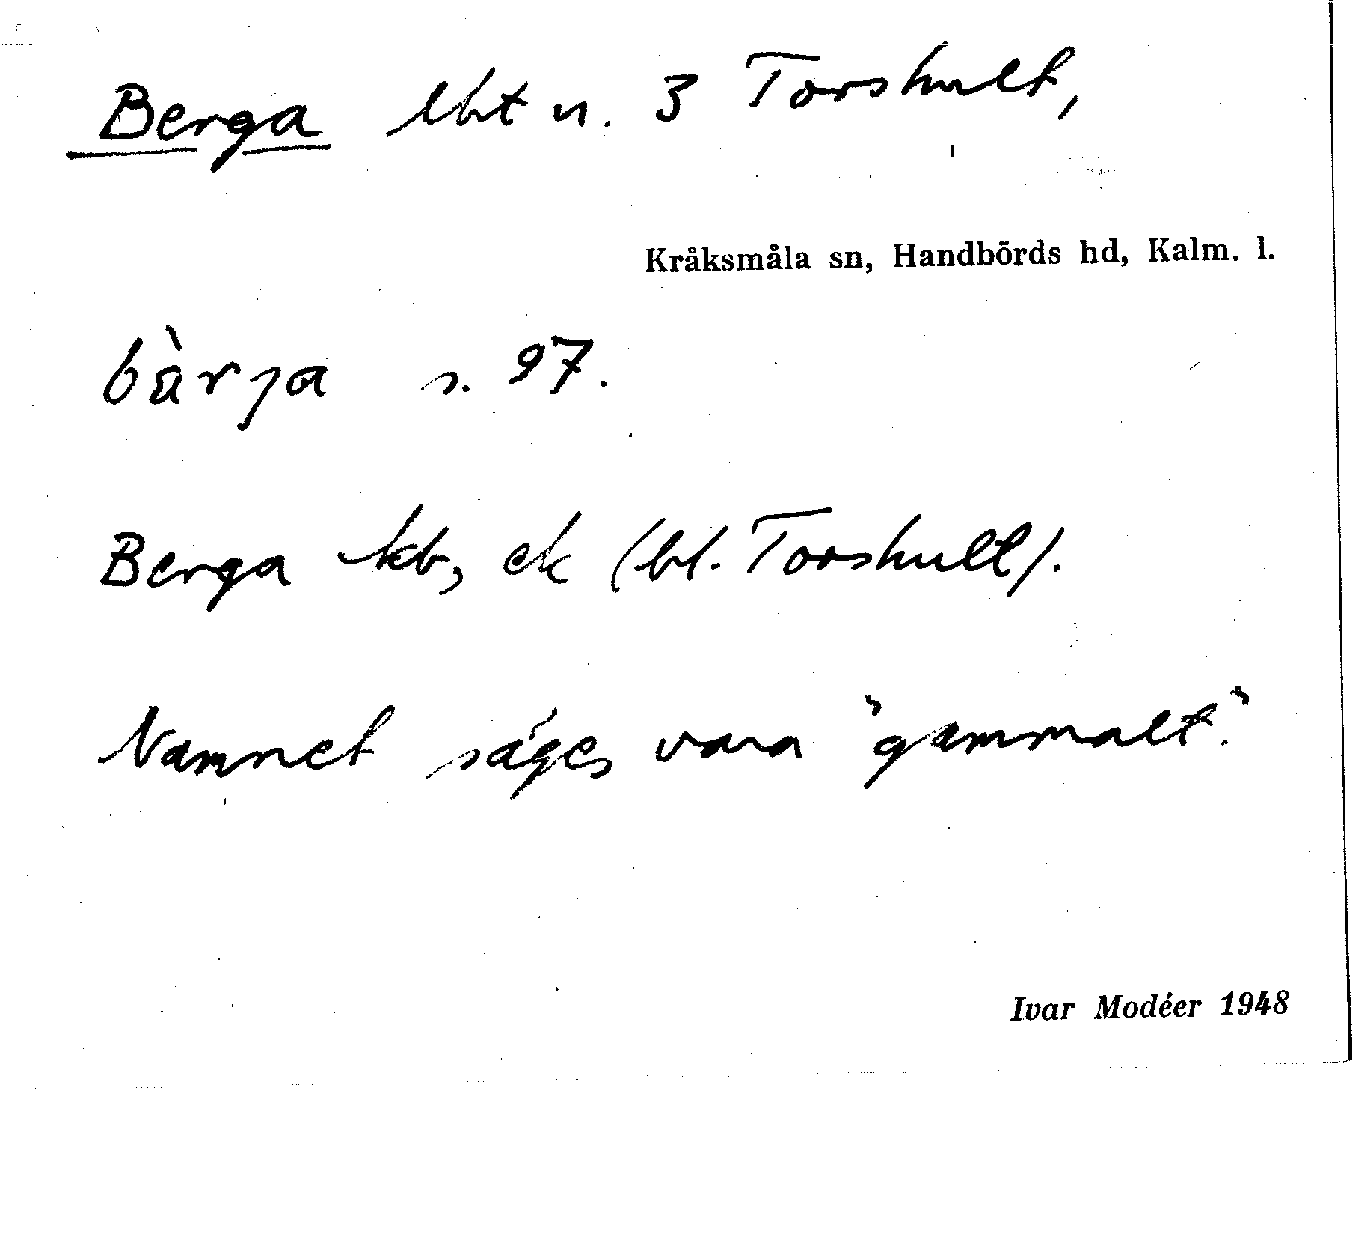 Berga lht u. 3 Torshult,
Kråksmåla sn, Handbörds hd, Kalm. l.
bàrja s. 97.
Berga kb, ek (bl. Torshult).
Namnet säges vara "gammalt".
Ivar Modéer 1948